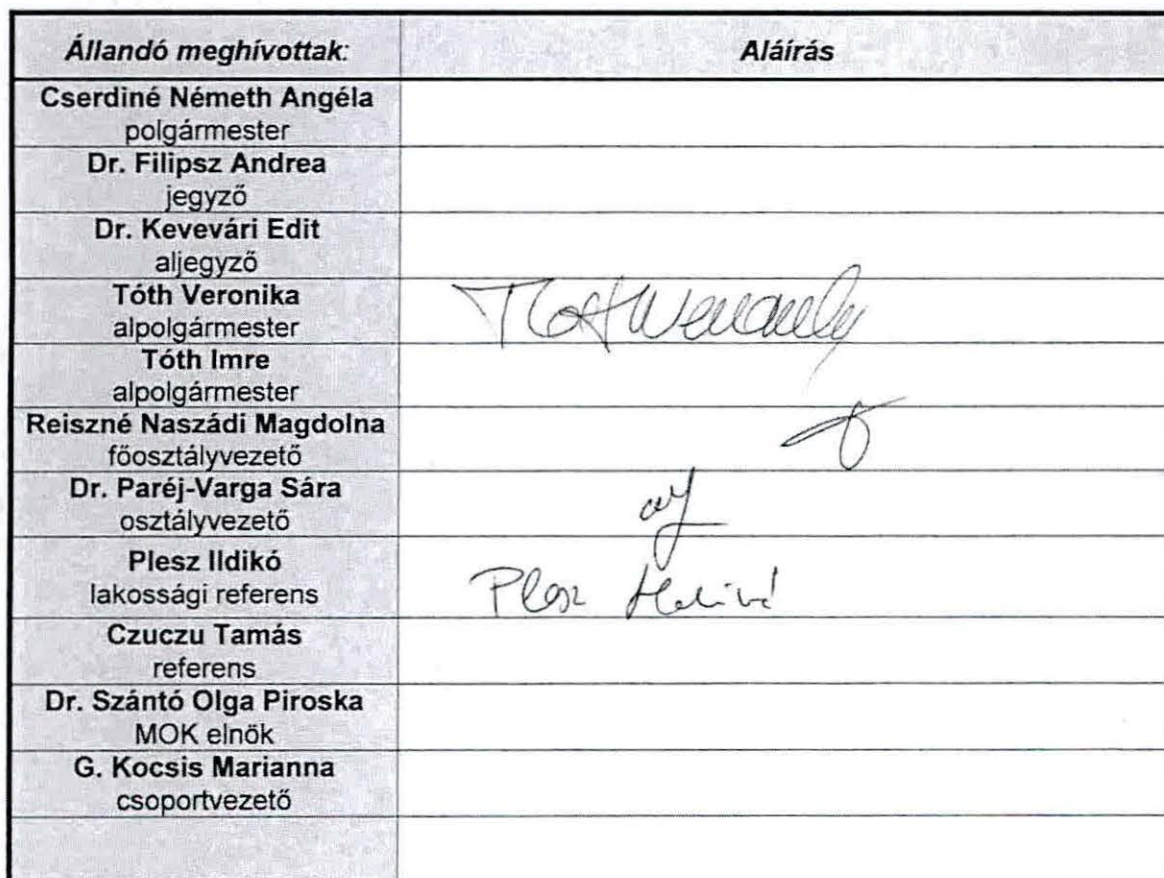 Állandó meghívottak: Aláírás
Cserdiné Németh Angéla
polgármester
Dr. Filipsz Andrea
jegyző
Dr. Kevevári Edit
aljegyző
Tóth Veronika
alpolgármester
Tóth Imre
alpolgármester
Reiszné Naszádi Magdolna
főosztályvezető
Dr. Paréj-Varga Sára
osztályvezető
Plesz Ildikó
lakossági referens
Plesz Ildikó
Czuczu Tamás
referens
Dr. Szántó Olga Piroska
MOK elnök
G. Kocsis Marianna
csoportvezető